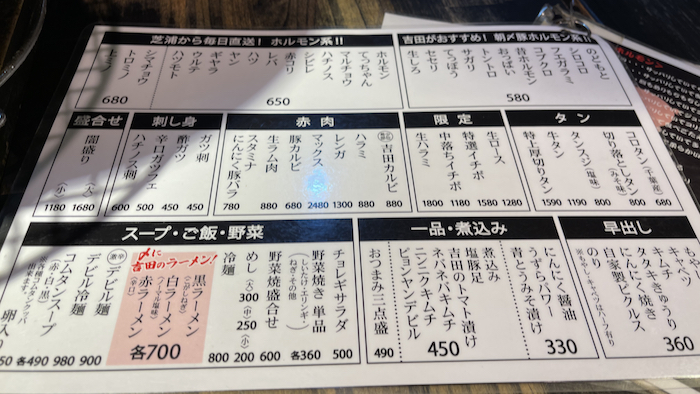 芝浦から毎日直送! ホルモン系!!
ホルモン
てっちゃん
マルチョウ
ハチノス
シビレ
赤コリ
レバ
ヤン
ギヤラ
ウルテ
ハツ
ハツモト
650
シマチョウ
トロミノ
上ミノ
680
吉田がおすすめ! 朝〆豚ホルモン系!!
のどもと
シロコロ
フエガラミ
コブクロ
昔ホルモン
おっぱい
トントロ
サガリ
てっぽう
セセリ
生しろ
580
タン
コロタン(千葉産)
680
切り落としタン
800
タンスジ(塩味)
550
生タン
1190
特上厚切りタン
1590
限定
生ロース
1280
特選イチボ
1580
中落ちイチボ
1180
生ハラミ
1800
赤肉
吉田カルビ
880
ハラミ
880
レンガ
1300
マックス
2480
豚カルビ
680
生ラム肉
880
スタミナ
にんにく豚バラ
780
刺し身
ガツ刺
450
酢ガツ
450
辛口ガツフェ
500
ハチノス刺
600
盛合せ
闇盛り
(大)
1680
(小)
1180
早出し
もやベツ
キムチ
タタキきゅうり
にんにく焼き
自家製ピクルス
のり
360
一品・煮込み
にんにく醤油
うずらパワー
とうみそ漬け
330
煮込み
塩豚足
吉田のトマト漬け
ネバネバキムチ
ニンニクキムチ
ピョンヤンデビル
450
おつまみ三点盛
490
スープ・ご飯・野菜
チョレギサラダ
500
野菜焼き 単品
(しいたけ・エリンギ・
ねぎ・その他)
各360
野菜焼盛合せ
600
めし
(大)300
(中)250
(小)200
冷麺
800
〆に
吉田のラーメン!
黒ラーメン
白ラーメン
赤ラーメン
(辛口)
各700
激辛
デビルラーメン
900
デビル冷麺
980
コムタンスープ
(赤・白・黒)
各490
卵入り